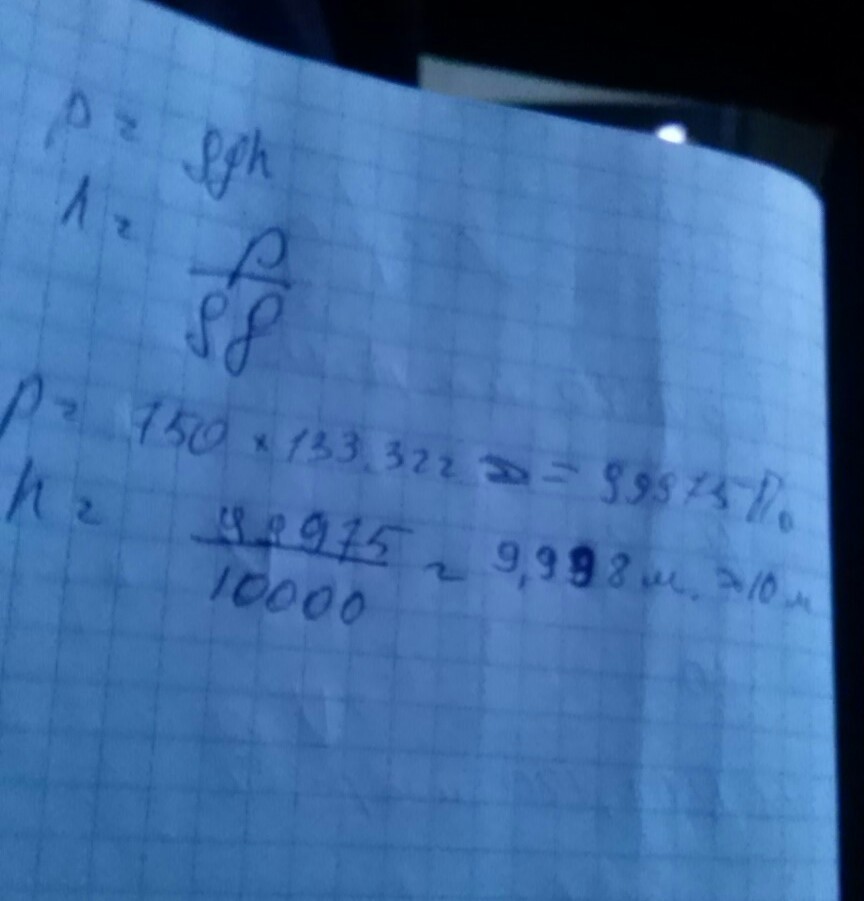 p = ρgh
h = p/ρg
p = 750 × 133.322 = 99975 Па
h = 99975/10000 = 9,998 м. ≈ 10 м